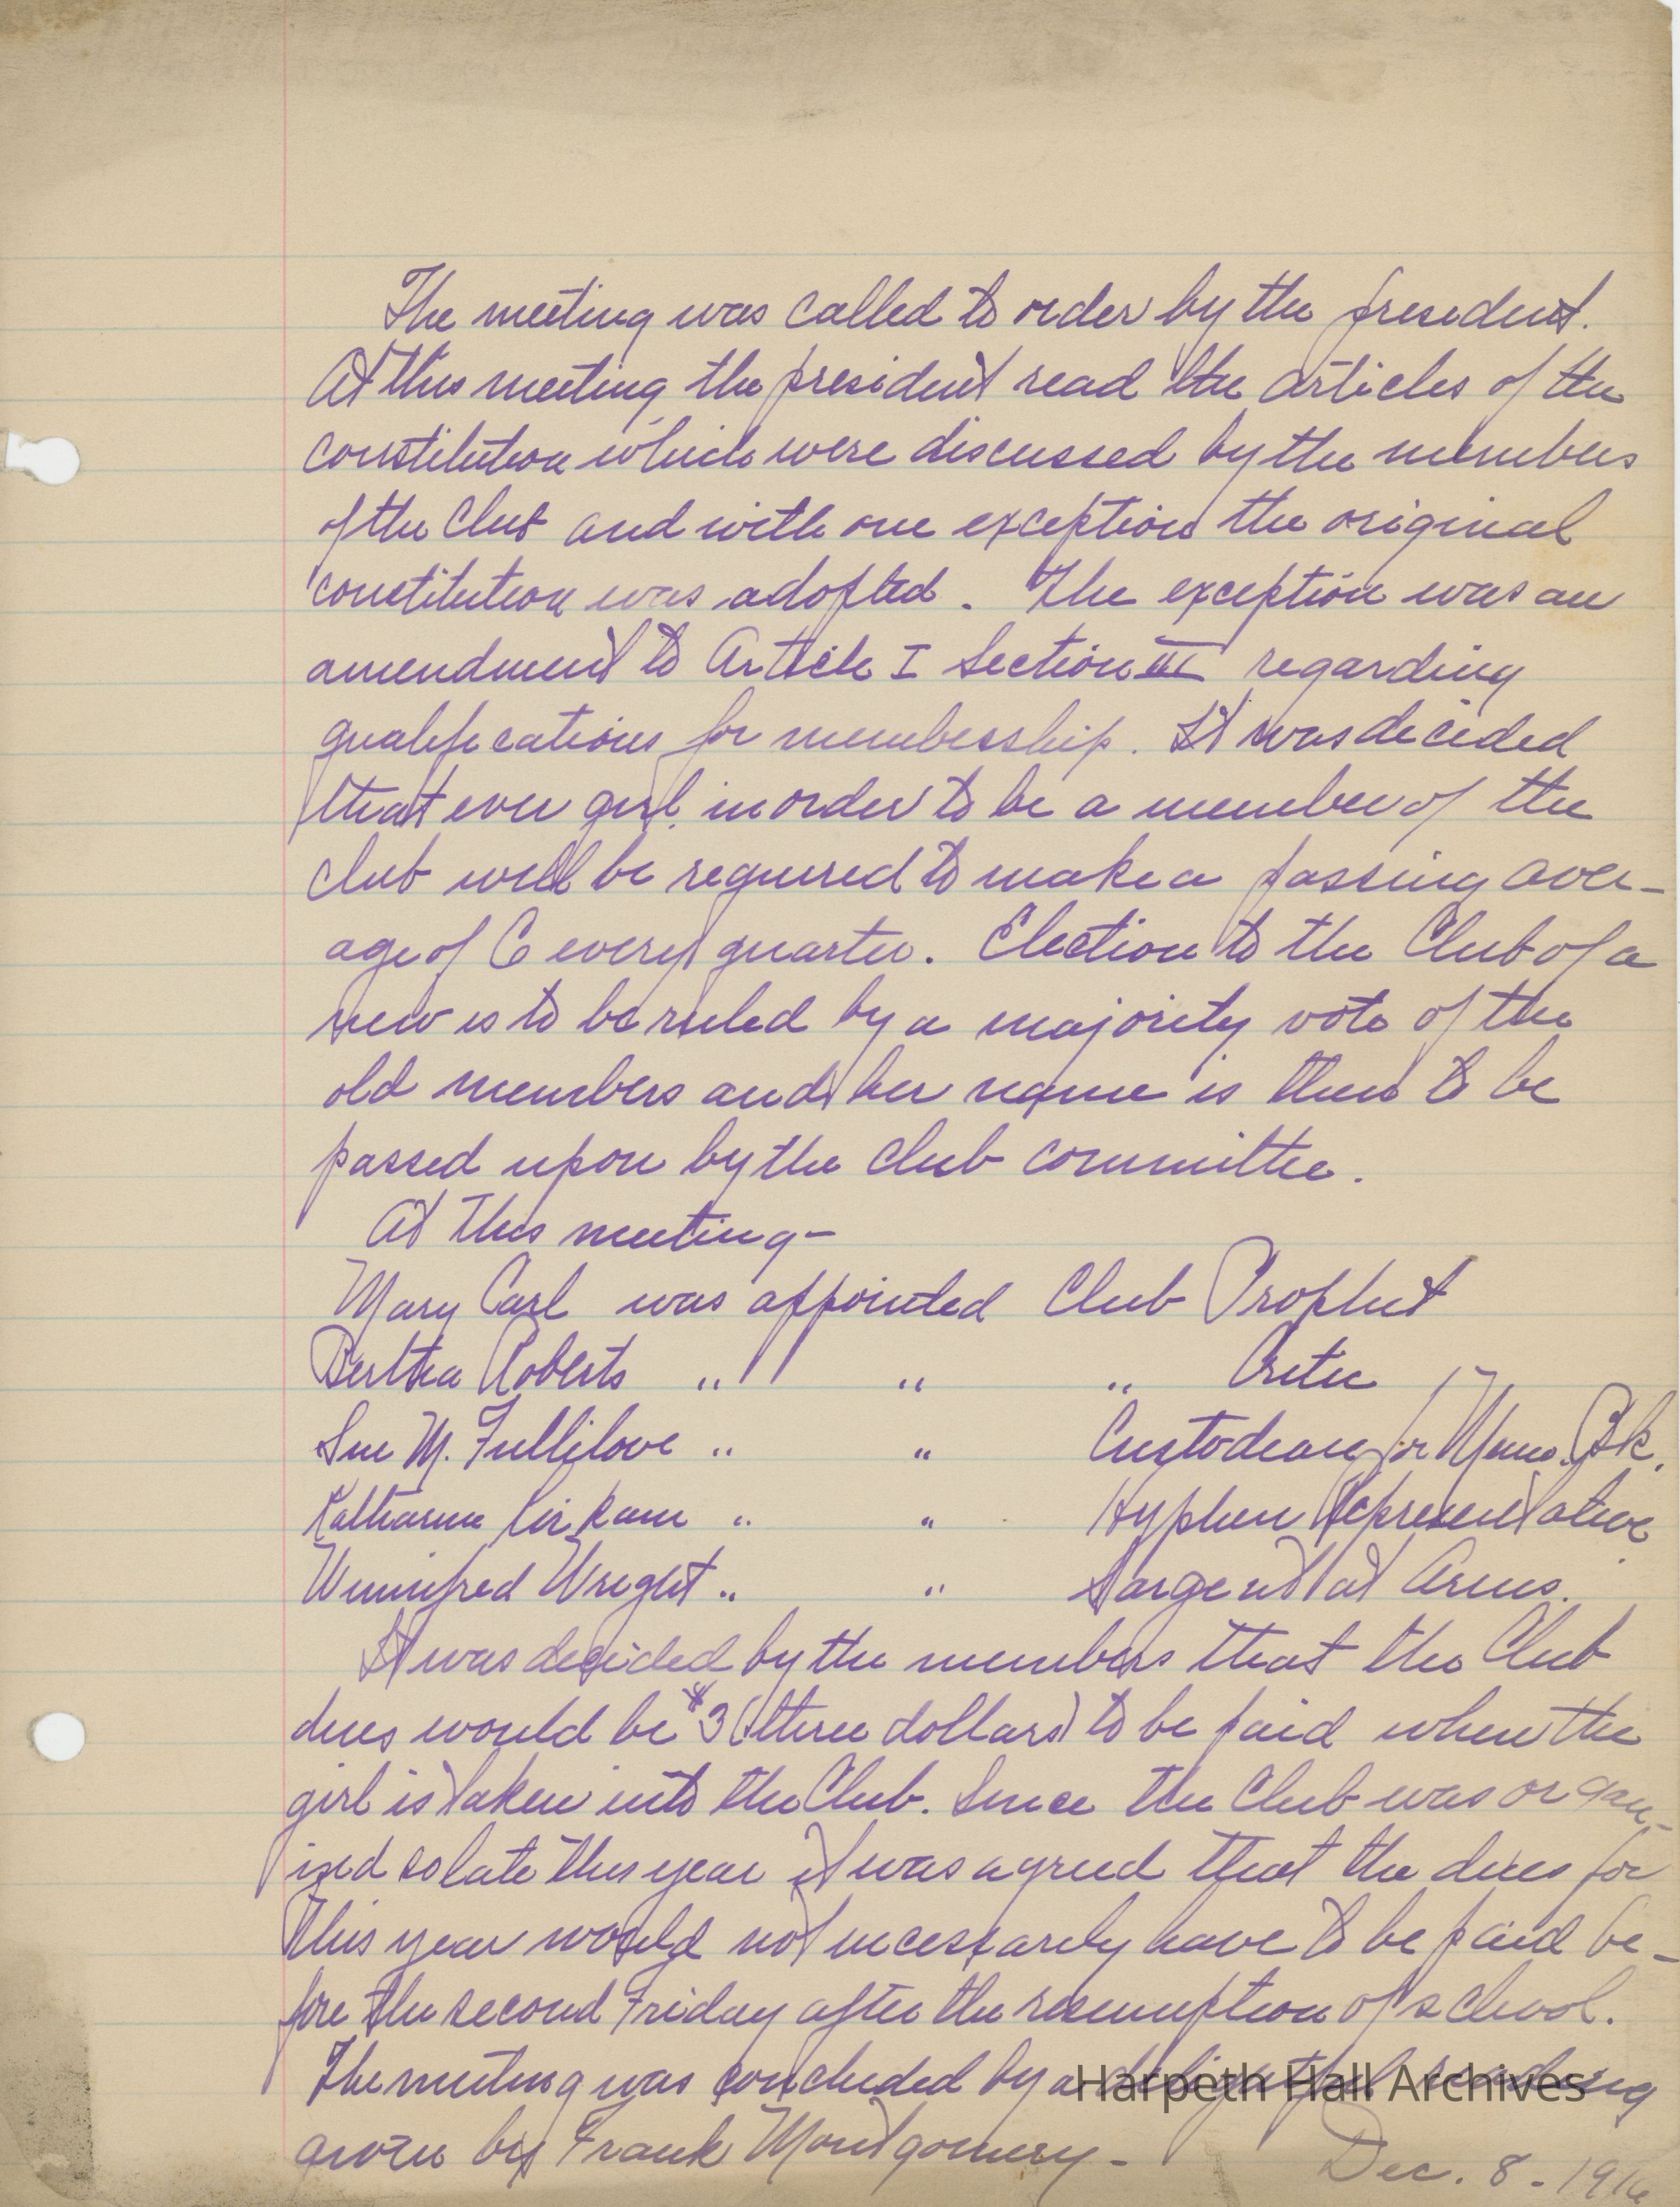 The meeting was called to order by the president.
At this meeting the president read the articles of the
constitution which were discussed by the members
of the Club and with one exception the original
constitution was adopted. The exception was an
amendment to Article I Section III regarding
qualifications for membership. It was decided
that ever girl in order to be a member of the
club will be required to make a passing aver-
age of C every quarter. Election to the Club of a
new is to be ruled by a majority vote of the
old members and her name is then to be
passed upon by the club committee.
At this meeting-
Mary Carl was appointed Club Prophet
Bertha Roberts " " " Critic
Sue M. Fullilove " " Custodean for Mem. Bk.
Katharine Kirkam " " Hyphen Representative
Winnifred Wright " " Sargent at Arms.
It was decided by the members that the Club
dues would be $3 (three dollars) to be paid when the
girl is taken into the Club. Since the Club was organ-
ized so late this year it was agreed that the dues for
this year would not necessarily have to be paid be-
fore the second Friday after the resumption of school.
The meeting was concluded by a delightful reading
given by Frank Montgomery-
Dec. 8 - 1916
Harpeth Hall Archives